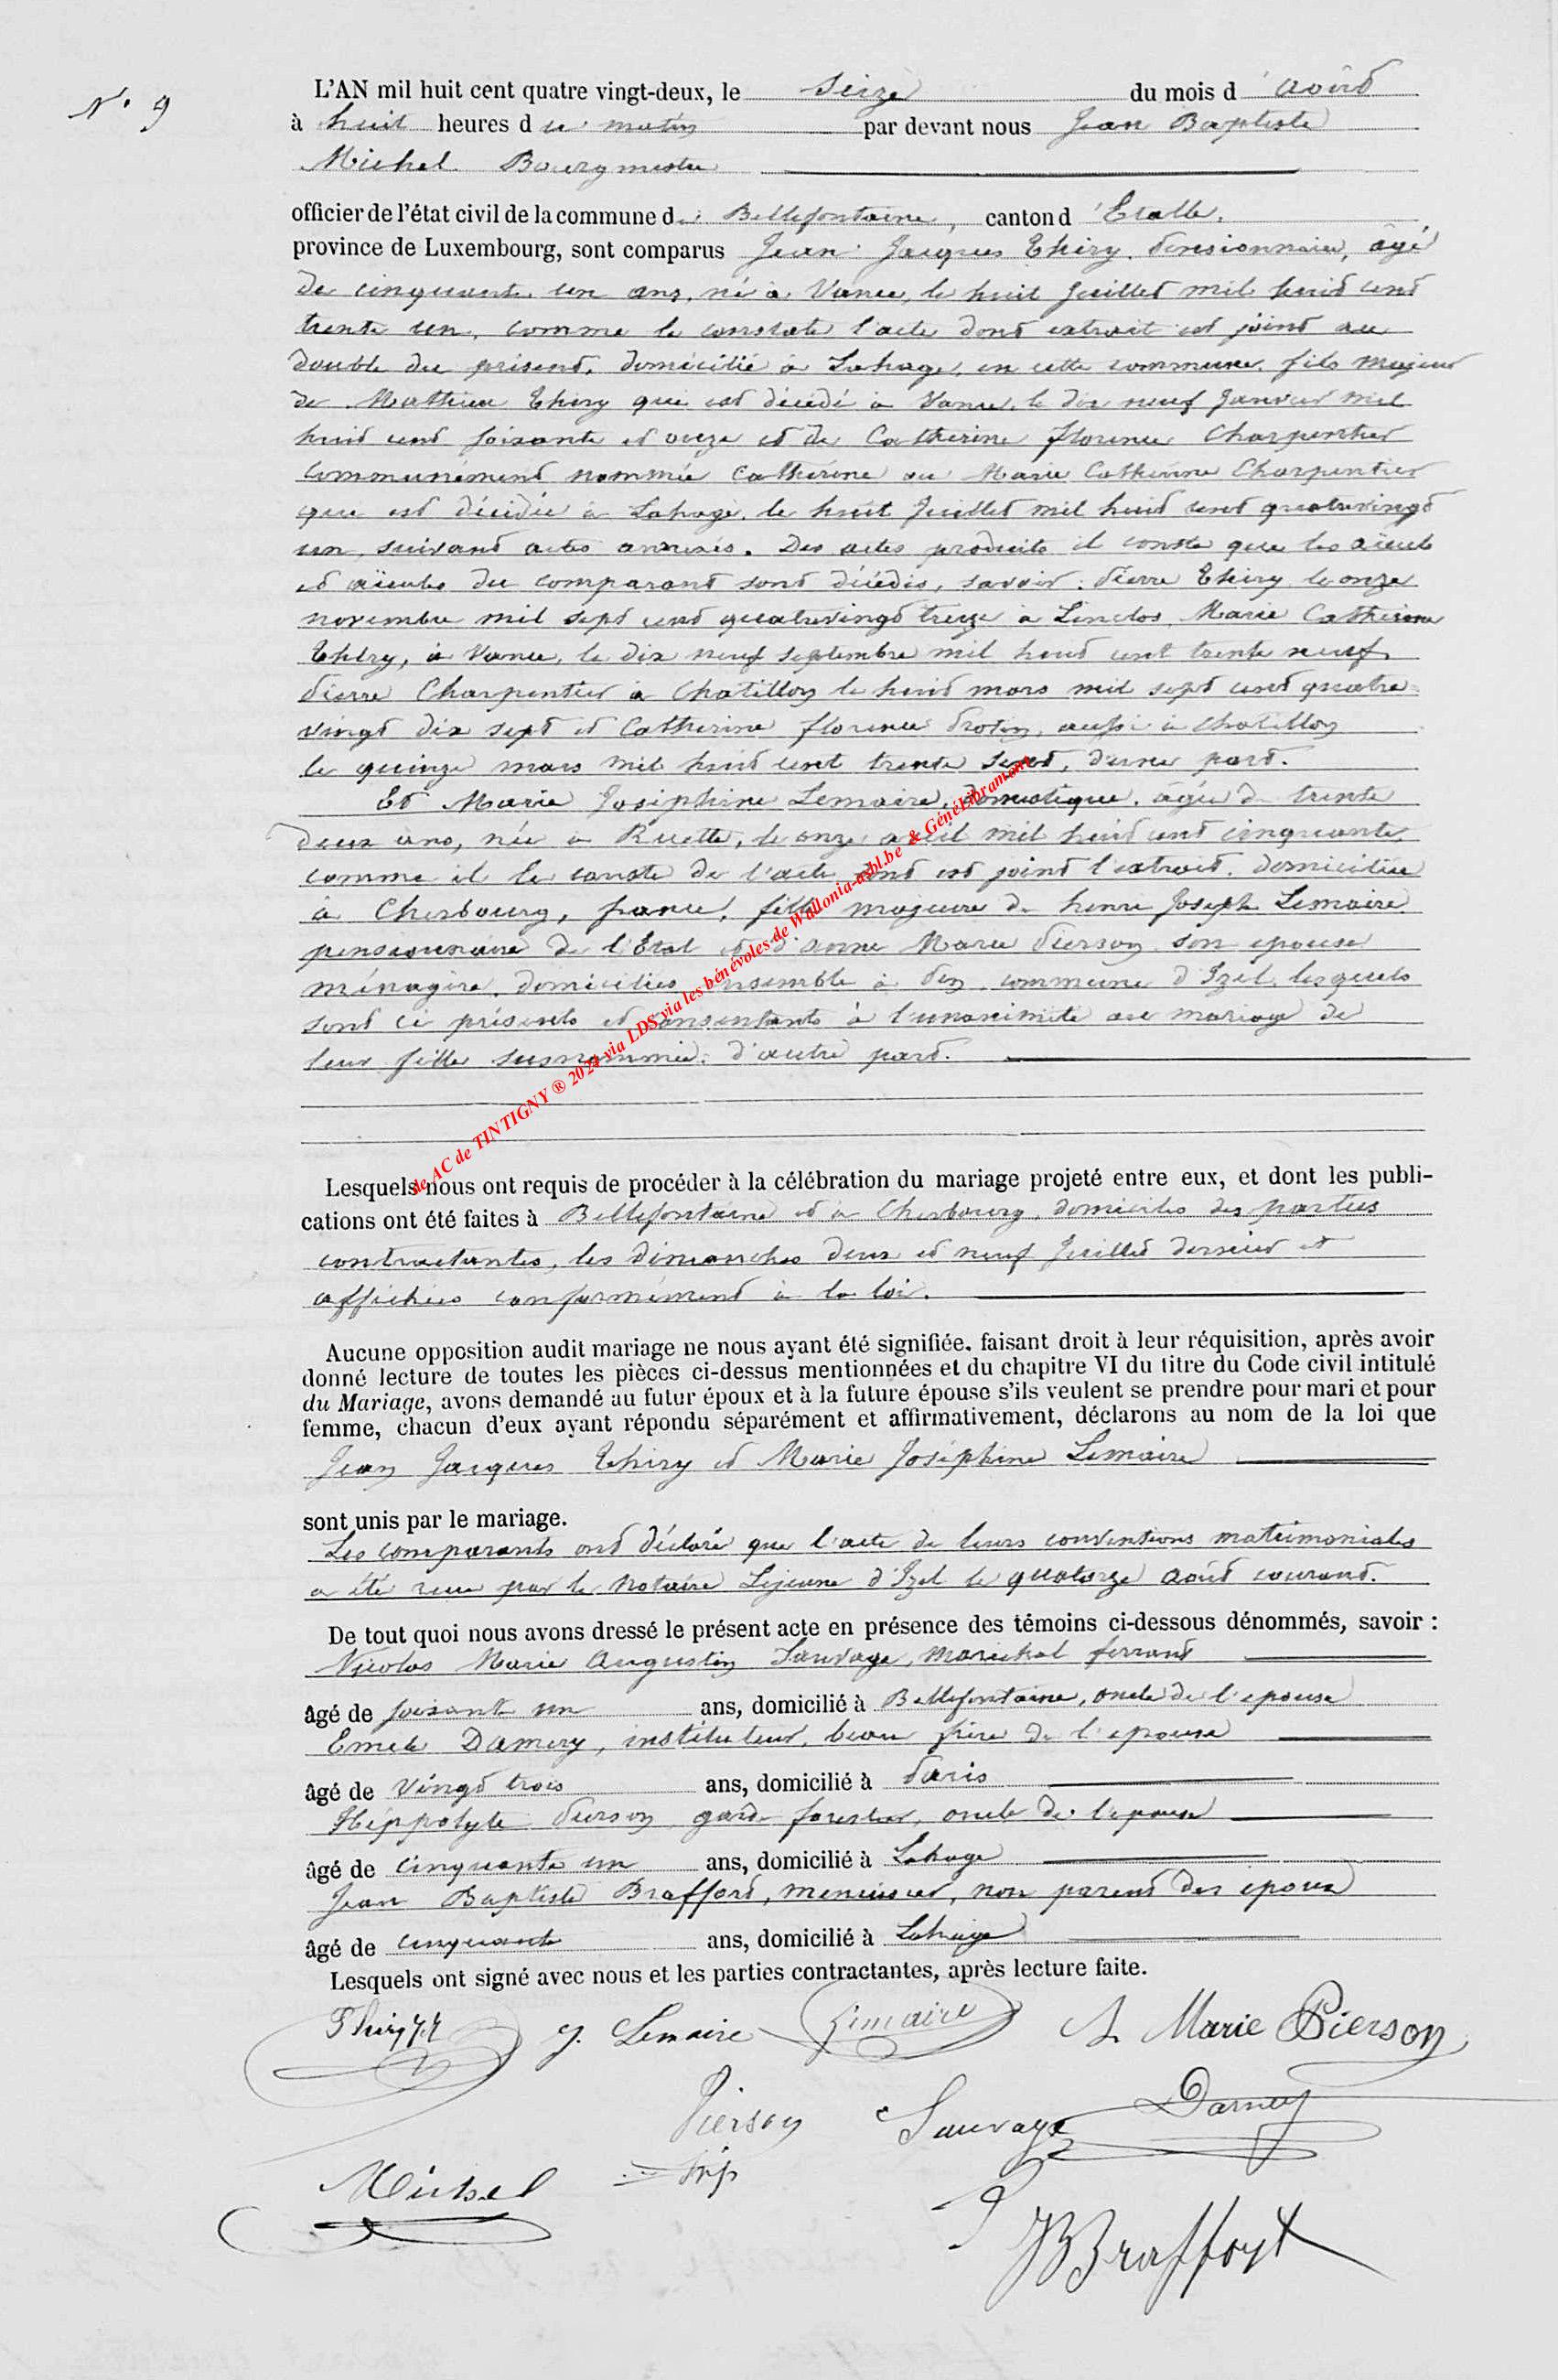 N° 9
L'AN mil huit cent quatre vingt-deux, le seize du mois d'août
à huit heures du matin par devant nous Jean Baptiste
Michel Bourgmestre
officier de l'état civil de la commune de Bellefontaine, canton d'Etalle,
province de Luxembourg, sont comparus Jean Jacques Thiry, pensionnaire, âgé
de cinquante un ans, né à Vance, le huit Juillet mil huit cent
trente un, comme le constate l'acte dont extrait est joint au
double du présent, domicilié à Lahage, en cette commune, fils majeur
de Mathieu Thiry que est décédé à Vance, le dix neuf Janvier mil
huit cent soixante et onze et de Catherine florence Charpentier
communément nommée Catherine ou Marie Catherine Charpentier
que est décédée à Lahage, le huit Juillet mil huit cent quatrevingt
un, suivant actes annexés. Des actes produits il conste que les aïeuls
et aïeules du comparant sont décédés, savoir: Pierre Thiry le onze
novembre mil sept cent quatrevingt treize à Linclos, Marie Catherine
Thiry, à Vance, le dix neuf septembre mil huit cent trente neuf,
Pierre Charpentier à Chatillon le huit mars mil sept cent quatre
vingt dix sept et Catherine florence aussi à Chatillon
le quinze mars mil huit cent trente sept, d'une part.
Et Marie Joséphine Lemaire, domestique, âgée de trente
deux ans, née à Ruette, le onze avril mil huit cent cinquante,
comme il le conste de l'acte dont est joint l'extrait, domiciliée
à Cherbourg, france, fille majeure de henri Joseph Lemaire
pensionnaire de l'Etat et d'anne Marie Pierson son epouse
ménagère, domiciliés ensemble à Pin, commune d'Izel, lesquels
sont ci présents et consentants à l'unanimité au mariage de
leur fille susnommée, d'autre part.
de AC de TINTIGNY ® 2024 via LDS via les bénévoles de Wallonia-asbl.be & GénéLibramont
Lesquels nous ont requis de procéder à la célébration du mariage projeté entre eux, et dont les publi-
cations ont été faites à Bellefontaine et à Cherbourg, domiciles des parties
contractantes, les dimanches deux et neuf Juillet dernier et
affichées conformément à la loi.
Aucune opposition audit mariage ne nous ayant été signifiée, faisant droit à leur réquisition, après avoir
donné lecture de toutes les pièces ci-dessus mentionnées et du chapitre VI du titre du Code civil intitulé
du Mariage, avons demandé au futur époux et à la future épouse s'ils veulent se prendre pour mari et pour
femme, chacun d'eux ayant répondu séparément et affirmativement, déclarons au nom de la loi que
Jean Jacques Thiry et Marie Joséphine Lemaire
sont unis par le mariage.
Les comparants ont déclaré que l'acte de leurs conventions matrimoniales
a été reçu par le Notaire Lejeune d'Izel le quatorze août courant.
De tout quoi nous avons dressé le présent acte en présence des témoins ci-dessous dénommés, savoir :
Nicolas Marie Augustin Sauvage, maréchal ferrant
âgé de soixante un ans, domicilié à Bellefontaine, oncle de l'epouse
Emile Damery, instituteur, beau frère de l'epouse
âgé de vingt trois ans, domicilié à Paris
Hippolyte Pierson, garde forestier, oncle de l'epouse
âgé de cinquante un ans, domicilié à Lahage
Jean Baptiste Braffort, menuisier, non parent des epoux
âgé de cinquante ans, domicilié à Lahage
Lesquels ont signé avec nous et les parties contractantes, après lecture faite.
Thiry J.J J. Lemaire Lemaire A. Marie Pierson
Pierson Sauvage
Hip
Michel
JBBraffort